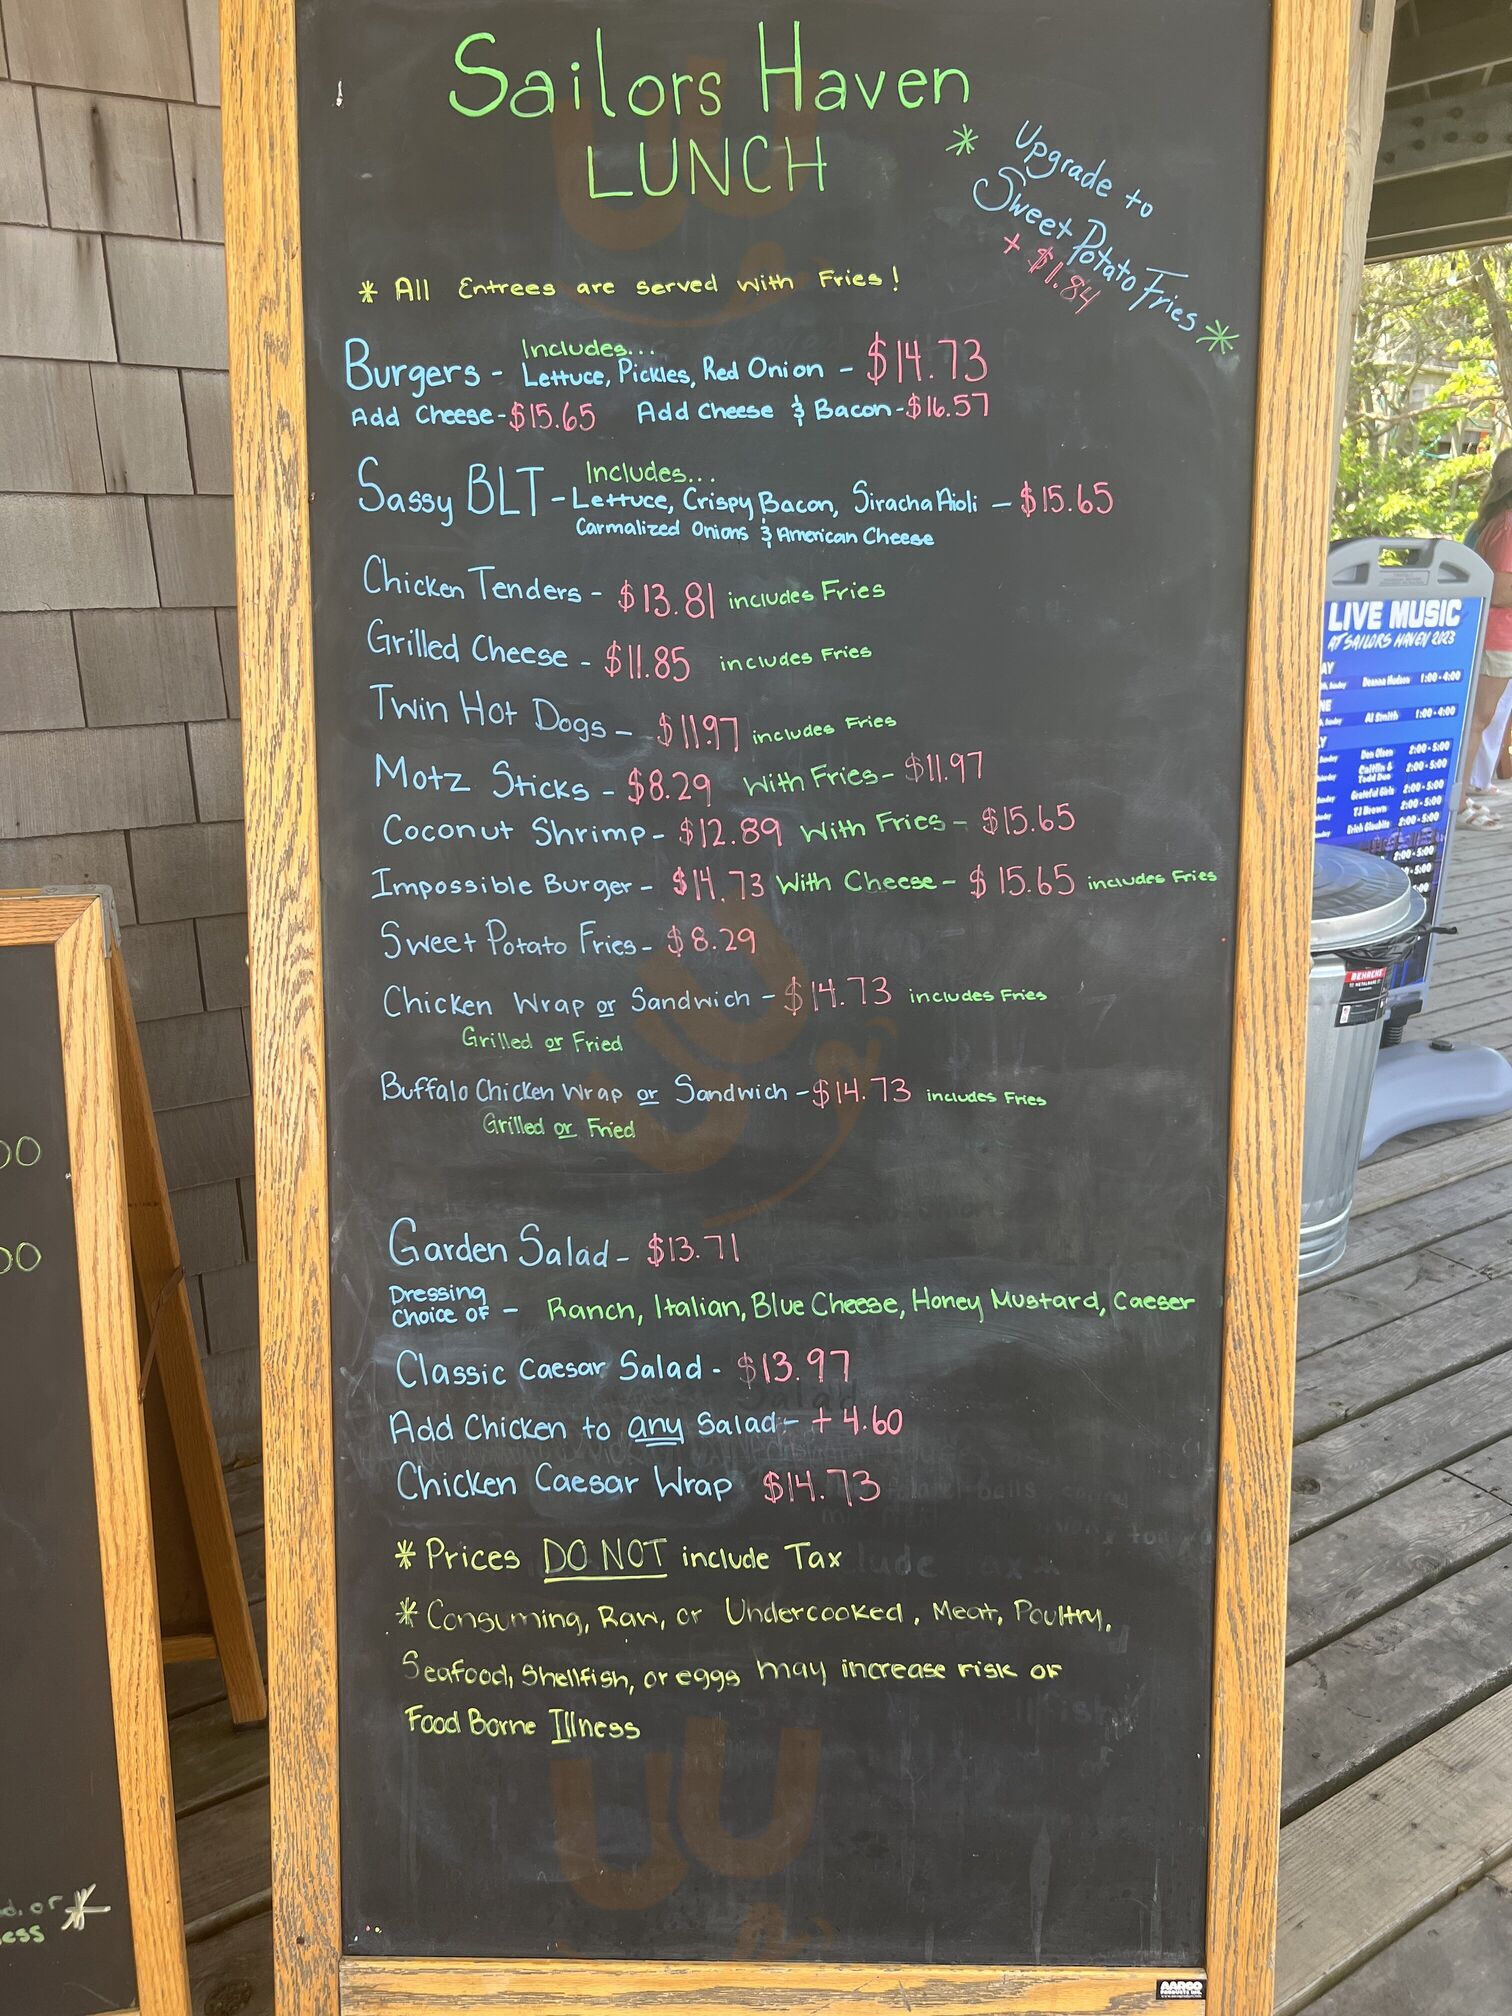 Sailors Haven
LUNCH
* Upgrade to
Sweet Potato Fries *
+ $1.84
* All Entrees are served with Fries!
Includes...
Burgers - Lettuce, Pickles, Red Onion - $14.73
Add Cheese - $15.65 Add Cheese & Bacon - $16.57
Includes...
Sassy BLT - Lettuce, Crispy Bacon, Siracha Aioli - $15.65
Carmalized Onions & American Cheese
Chicken Tenders - $13.81 includes Fries
Grilled Cheese - $11.85 includes Fries
Twin Hot Dogs - $11.97 includes Fries
Motz Sticks - $8.29 With Fries - $11.97
Coconut Shrimp - $12.89 With Fries - $15.65
Impossible Burger - $14.73 With Cheese - $15.65 includes Fries
Sweet Potato Fries - $8.29
Chicken Wrap or Sandwich - $14.73 includes Fries
Grilled or Fried
Buffalo Chicken Wrap or Sandwich - $14.73 includes Fries
Grilled or Fried
Garden Salad - $13.71
Dressing
Choice of - Ranch, Italian, Blue Cheese, Honey Mustard, Caeser
Classic Caesar Salad - $13.97
Add Chicken to any Salad - + 4.60
Chicken Caesar Wrap $14.73
* Prices DO NOT include Tax
* Consuming, Raw, or Undercooked, Meat, Poultry,
Seafood, Shellfish, or eggs may increase risk of
Food Borne Illness
LIVE MUSIC
AT SAILORS HAVEN 2023
Deanna Hudson 1:00-4:00
Al Smith 1:00-4:00
Don Olsen 2:00-5:00
Caitlin &
Todd Duo 2:00-5:00
Grateful Girls 2:00-5:00
TJ Brown 2:00-5:00
2:00-5:00
2:00-5:00
BEHRENS
AARCO